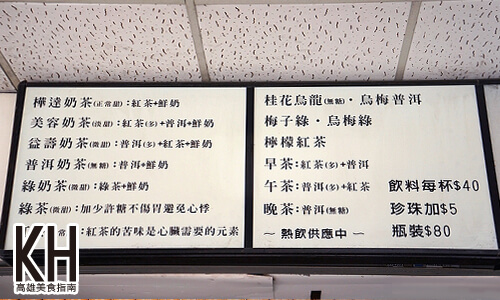 樺達奶茶(正常甜):紅茶+鮮奶
美容奶茶(微甜):紅茶(多)+普洱+鮮奶
益壽奶茶(微甜):普洱(多)+紅茶+鮮奶
普洱奶茶(無糖):普洱+鮮奶
綠奶茶(微甜):綠茶+鮮奶
綠茶(微甜):加少許糖不傷胃避免心悸
:紅茶的苦味是心臟需要的元素
桂花烏龍(無糖)·烏梅普洱
梅子綠·烏梅綠
檸檬紅茶
早茶:紅茶(多)+普洱
午茶:普洱(多)+紅茶 飲料每杯$40
晚茶:普洱(無糖) 珍珠加$5
~熱飲供應中~ 瓶裝$80
KH
高雄美食指南